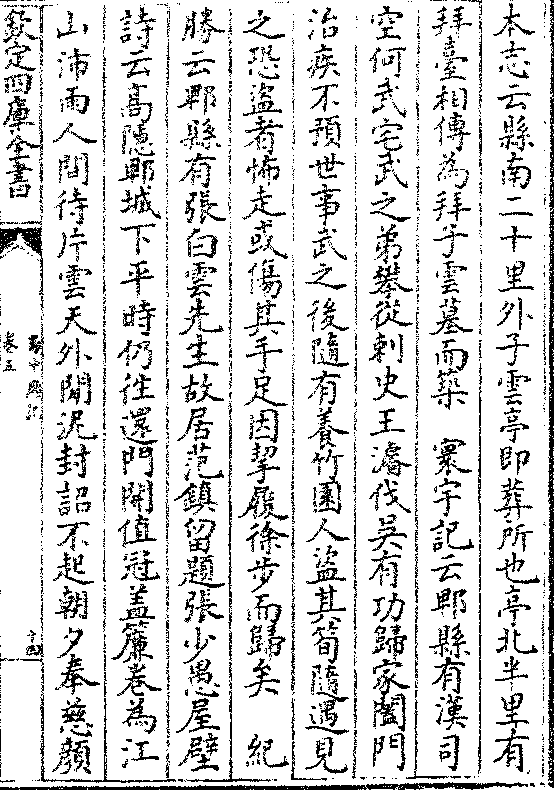 本志云縣南二十里外子雲亭即葬所也亭北半里有
拜臺相傳為拜子雲墓而築　寰宇記云郫縣有漢司
空何武宅武之弟攀從刺史王濬伐吳有功歸家闔門
治疾不預世事武之後隨有養竹園人盜其筍隨遇見
之恐盜者怖走或傷其手足因挈履徐步而歸矣　紀
勝云郫縣有張白雲先生故居范鎮留題張少愚屋壁
詩云高隱郫城下平時仍往還門開值冠盖簾卷為江
山沛雨人間待片雲天外閒泥封詔不起朝夕奉慈顏
欽定四庫全書
卷五
十四